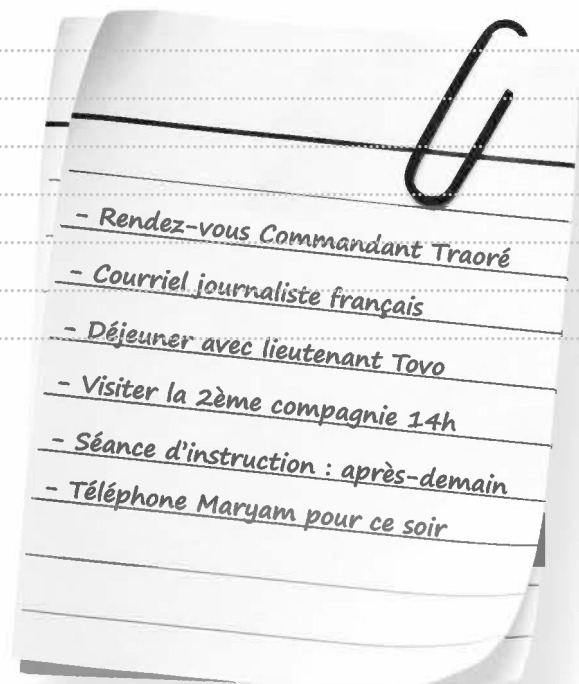 - Rendez-vous Commandant Traoré
- Courriel journaliste français
- Déjeuner avec lieutenant Tovo
- Visiter la 2ème compagnie 14h
- Séance d'instruction : après-demain
- Téléphone Maryam pour ce soir